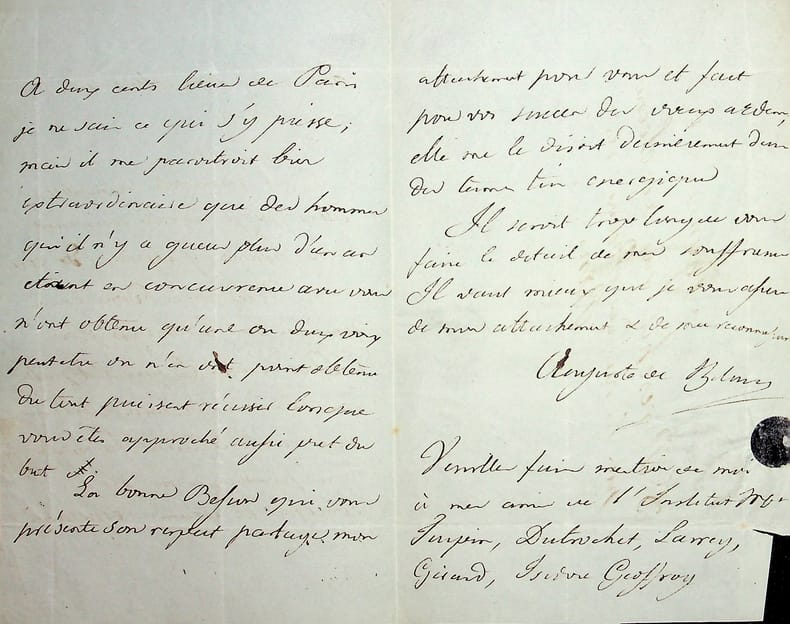 A deux cents lieues de Paris
je ne sais ce qui s'y passe;
mais il me paroitroit bien
extraordinaire que des hommes
qui il n'y a gueres plus d'un an
étoient en concurrence avec vous
n'ont obtenu qu'une ou deux voix
peutetre ou n'en ont point obtenu
du tout puissent réussir lorsque
vous êtes approché aussi près du
but
La bonne Besson qui vous
présente son respect partage mon
attachement pour vous et fait
pour vos succès des voeux ardens,
elle me le disoit dernièrement dans
des termes très energiques
Il seroit trop long de vous
faire le détail de mes souffrances
Il vaut mieux que je vous assure
de mon attachement & de ma reconnaissance
Auguste de
Veuillez faire mention de moi
à mes amis de l'Institut Mrs
Turpin, Dutrochet, Larrey,
Girard, Isidore Geoffroy